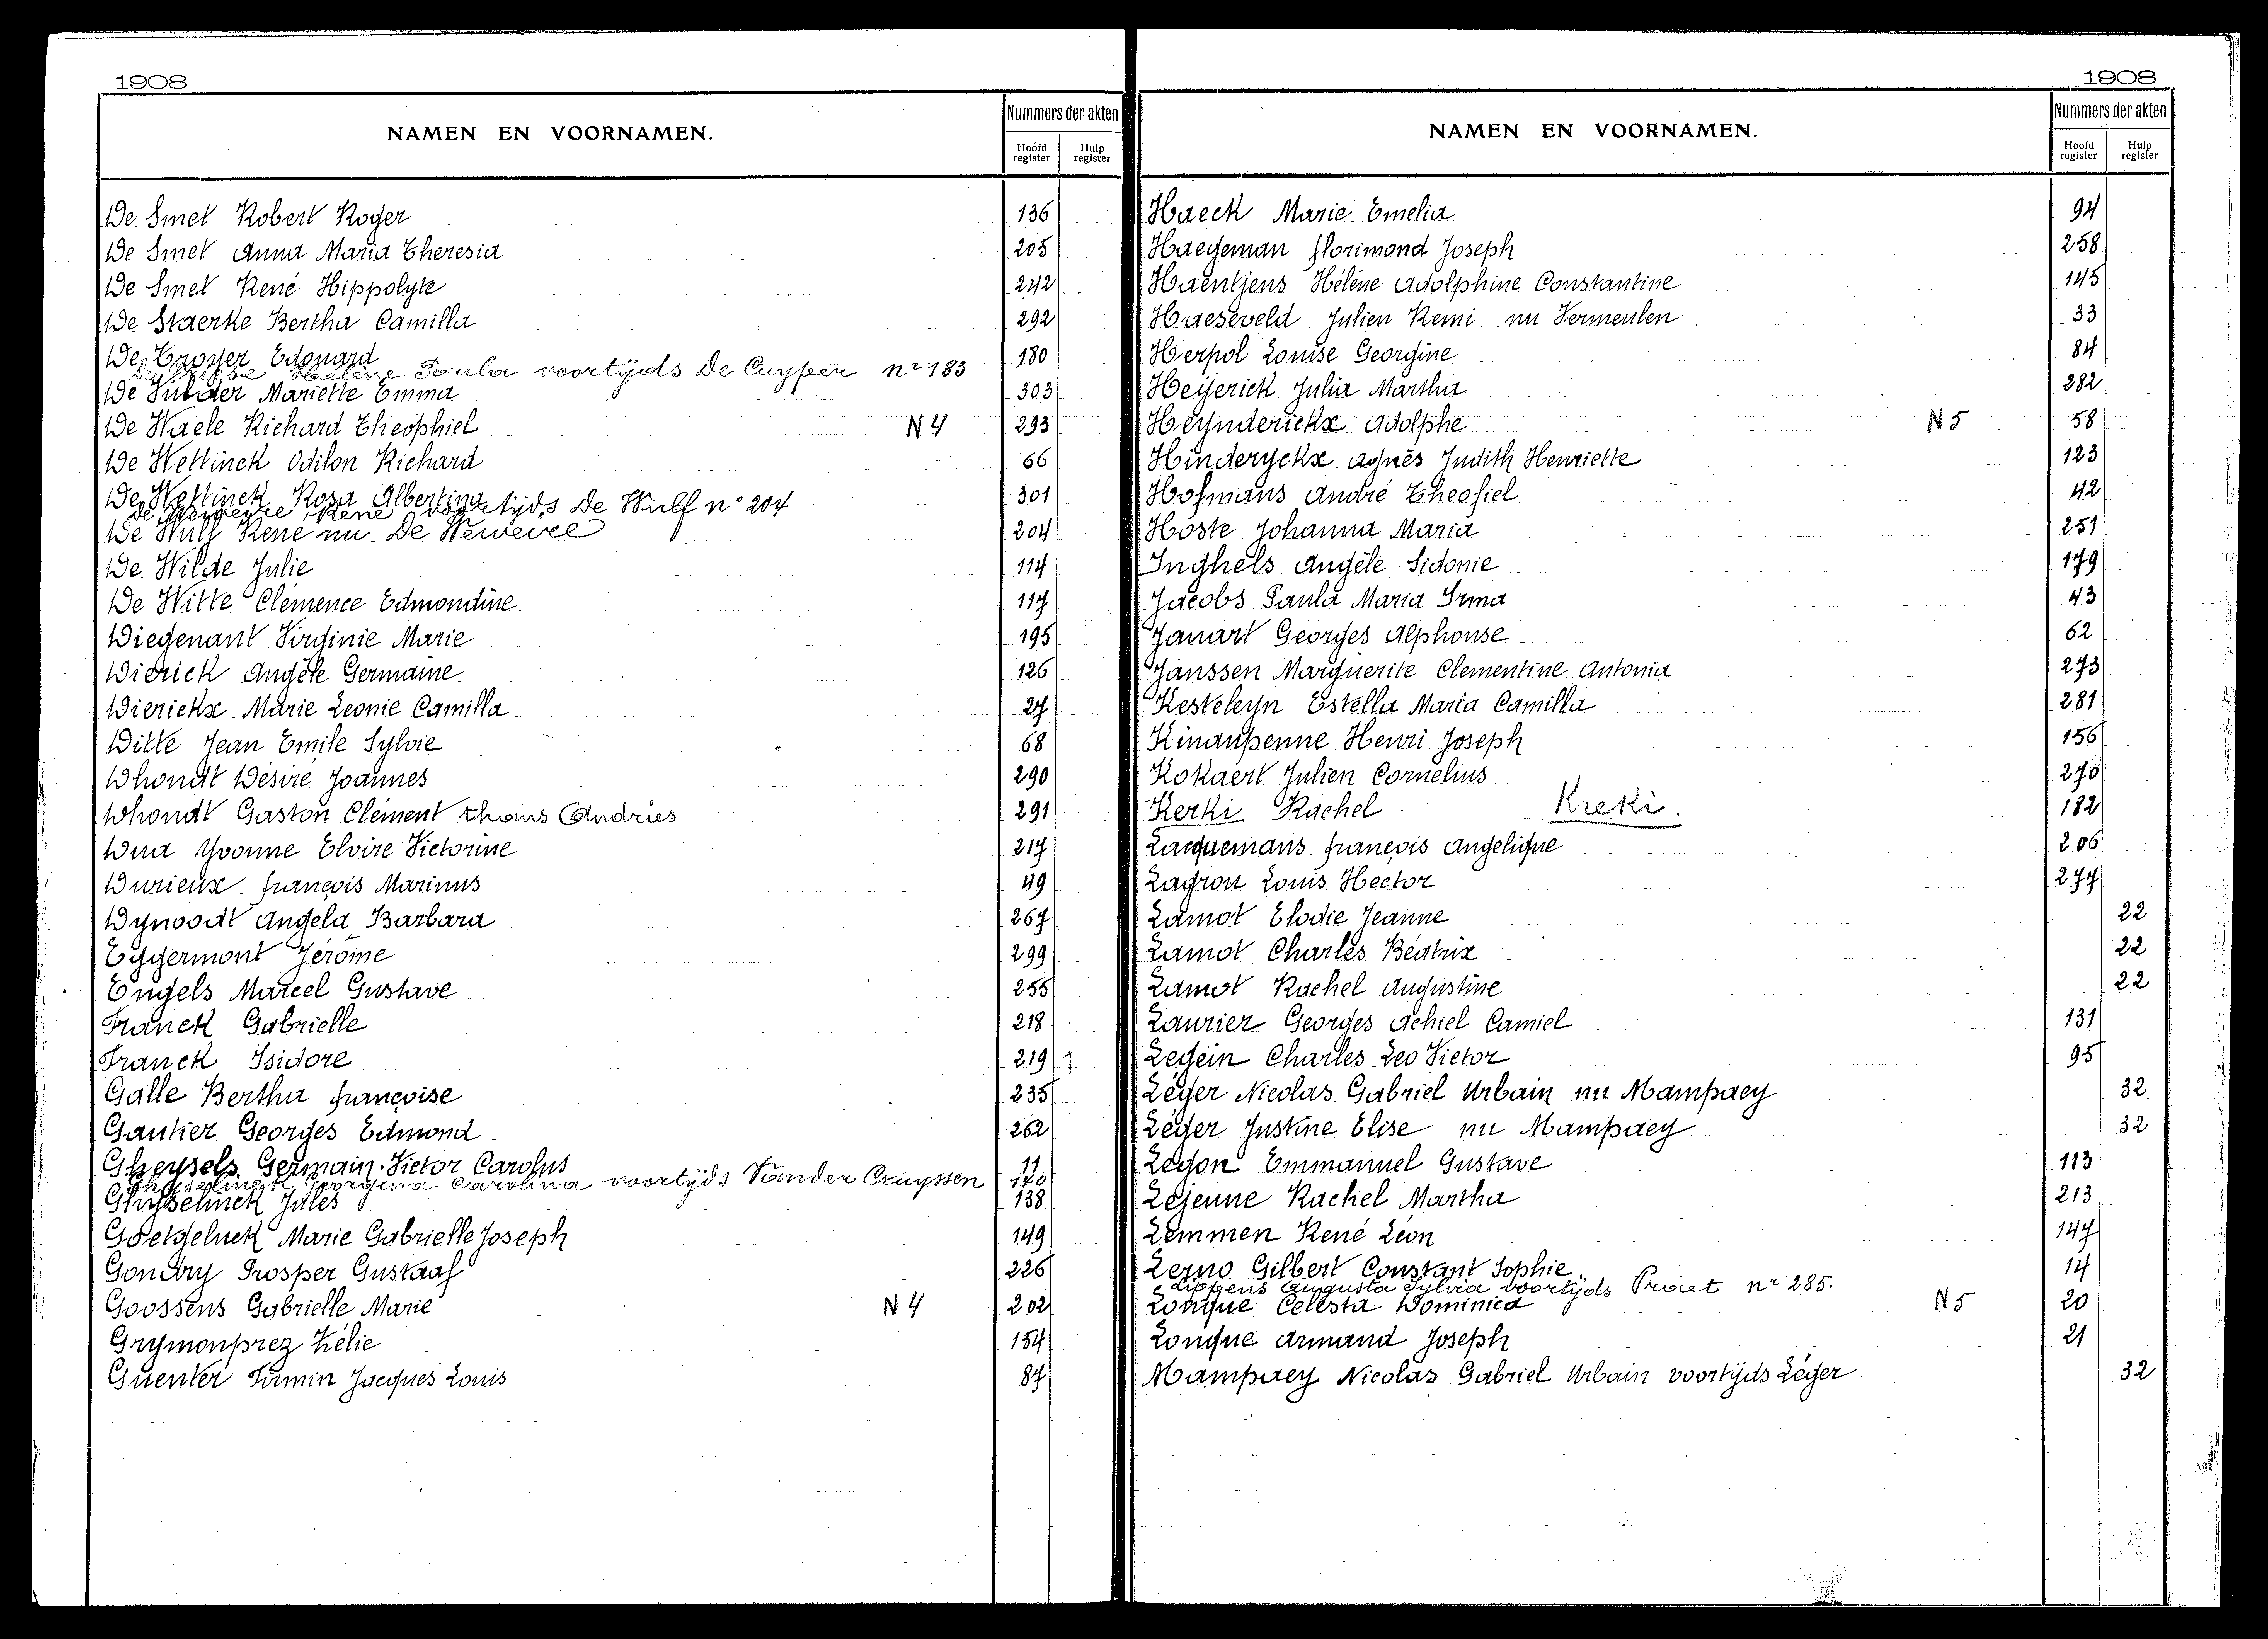 1908
NAMEN EN VOORNAMEN. Nummers der akten
Hoofd register Hulp register
De Smet Robert Roger 136
De Smet Anna Maria Theresia 205
De Smet René Hippolyte 242
De Staerke Bertha Camilla 292
De Tavyer Edouard 180
Hélène Paula voortijds De Cuyper nr 183
De Mariette Emma 303
De Waele Richard Theophiel N 4 293
De Wettinck Odilon Richard 66
De Wettinck Rosa Albertina 301
De Weweire René voortijds De Wulf n° 204
De Wulf René nu De Weweire 204
De Wilde Julie 114
De Witte Clémence Edmondine 117
Diegenant Virginie Marie 195
Dierick Angèle Germaine 126
Dierickx Marie Leonie Camilla 27
Ditte Jean Emile Sylvie 68
Dhondt Désiré Joannes 290
Dhondt Gaston Clément thans Andries 291
Dua Yvonne Elvire Victorine 217
Durieux François Marinus 49
Dynoodt Angela Barbara 267
Eggermont Jérôme 299
Engels Marcel Gustave 255
Franck Gabrielle 218
Franck Isidore 219
Galle Bertha Françoise 235
Gautier Georges Edmond 262
Gheysels Germain Victor Carolus 11
Ghyselinck Georgina Carolina voortijds Vander Cruyssen 170
Ghyselinck Jules 138
Goetgeluck Marie Gabrielle Joseph 149
Gondry Prosper Gustaaf 226
Goossens Gabrielle Marie N 4 202
Grymonprez Zélie 154
Guenter Firmin Jacques Louis 87
1908
NAMEN EN VOORNAMEN. Nummers der akten
Hoofd register Hulp register
Haeck Marie Emelia 94
Haegeman Florimond Joseph 258
Haentjens Hélène Adolphine Constantine 145
Haeseveld Julien Remi nu Vermeulen 33
Herpol Louise Georgine 84
Heyerick Julia Martha 282
Heynderickx Adolphe N 5 58
Hinderyckx Agnès Judith Henriette 123
Hofmans André Theofiel 42
Hoste Johanna Maria 251
Inghels Angèle Sidonie 179
Jacobs Paula Maria Irma 43
Janart Georges Alphonse 62
Janssen Marguerite Clementine Antonia 273
Kesteleyn Estella Maria Camilla 281
Kinaupenne Henri Joseph 156
Kokaert Julien Cornelius 270
Kerki Rachel Kreki. 182
Lacquemans François Angelique 206
Lagron Louis Hector 277
Lamot Elodie Jeanne 22
Lamot Charles Béatrix 22
Lamot Rachel Augustine 22
Laurier Georges Achiel Camiel 131
Legein Charles Leo Victor 95
Léger Nicolas Gabriel Urbain nu Mampaey 32
Léger Justine Elise nu Mampaey 32
Legon Emmanuel Gustave 113
Lejeune Rachel Martha 213
Lemmen René Léon 147
Lerno Gilbert Constant Sophie 14
Lippens Augusta Sylvia voortijds Praet nr 285.
Lonque Celesta Dominica N 5 20
Lonque Armand Joseph 21
Mampaey Nicolas Gabriel Urbain voortijds Léger. 32